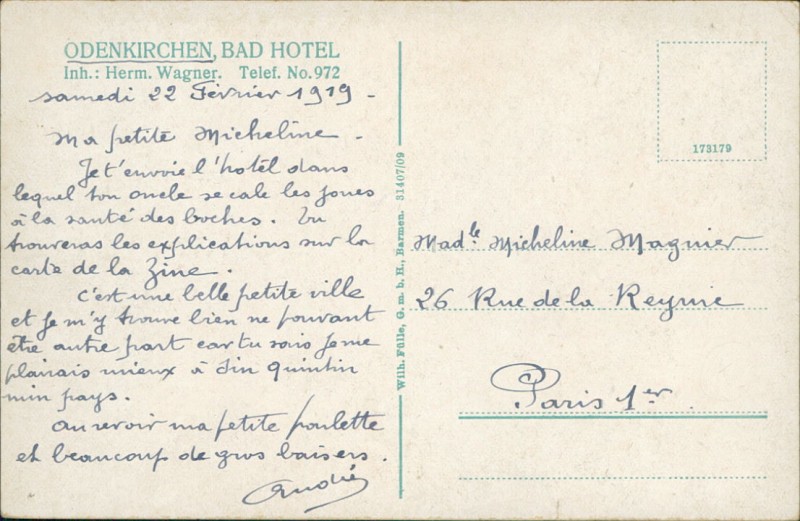 ODENKIRCHEN, BAD HOTEL
Inh.: Herm. Wagner. Telef. No. 972
samedi 22 Février 1919 -
Ma petite Micheline -
Je t'envoie l'hotel dans
lequel ton oncle se cale les joues
à la santé des boches. Tu
trouveras les explications sur la
carte de la Zine.
C'est une belle petite ville
et je m'y trouve bien ne pouvant
être autre part car tu sais je me
plairais mieux à Sin Quintin
min pays.
Au revoir ma petite poulette
et beaucoup de gros baisers.
André
Wilh. Fülle, G. m. b. H., Barmen. 31407/09
173179
Madlle Micheline Magnier
26 Rue de la Reynie
Paris 1er